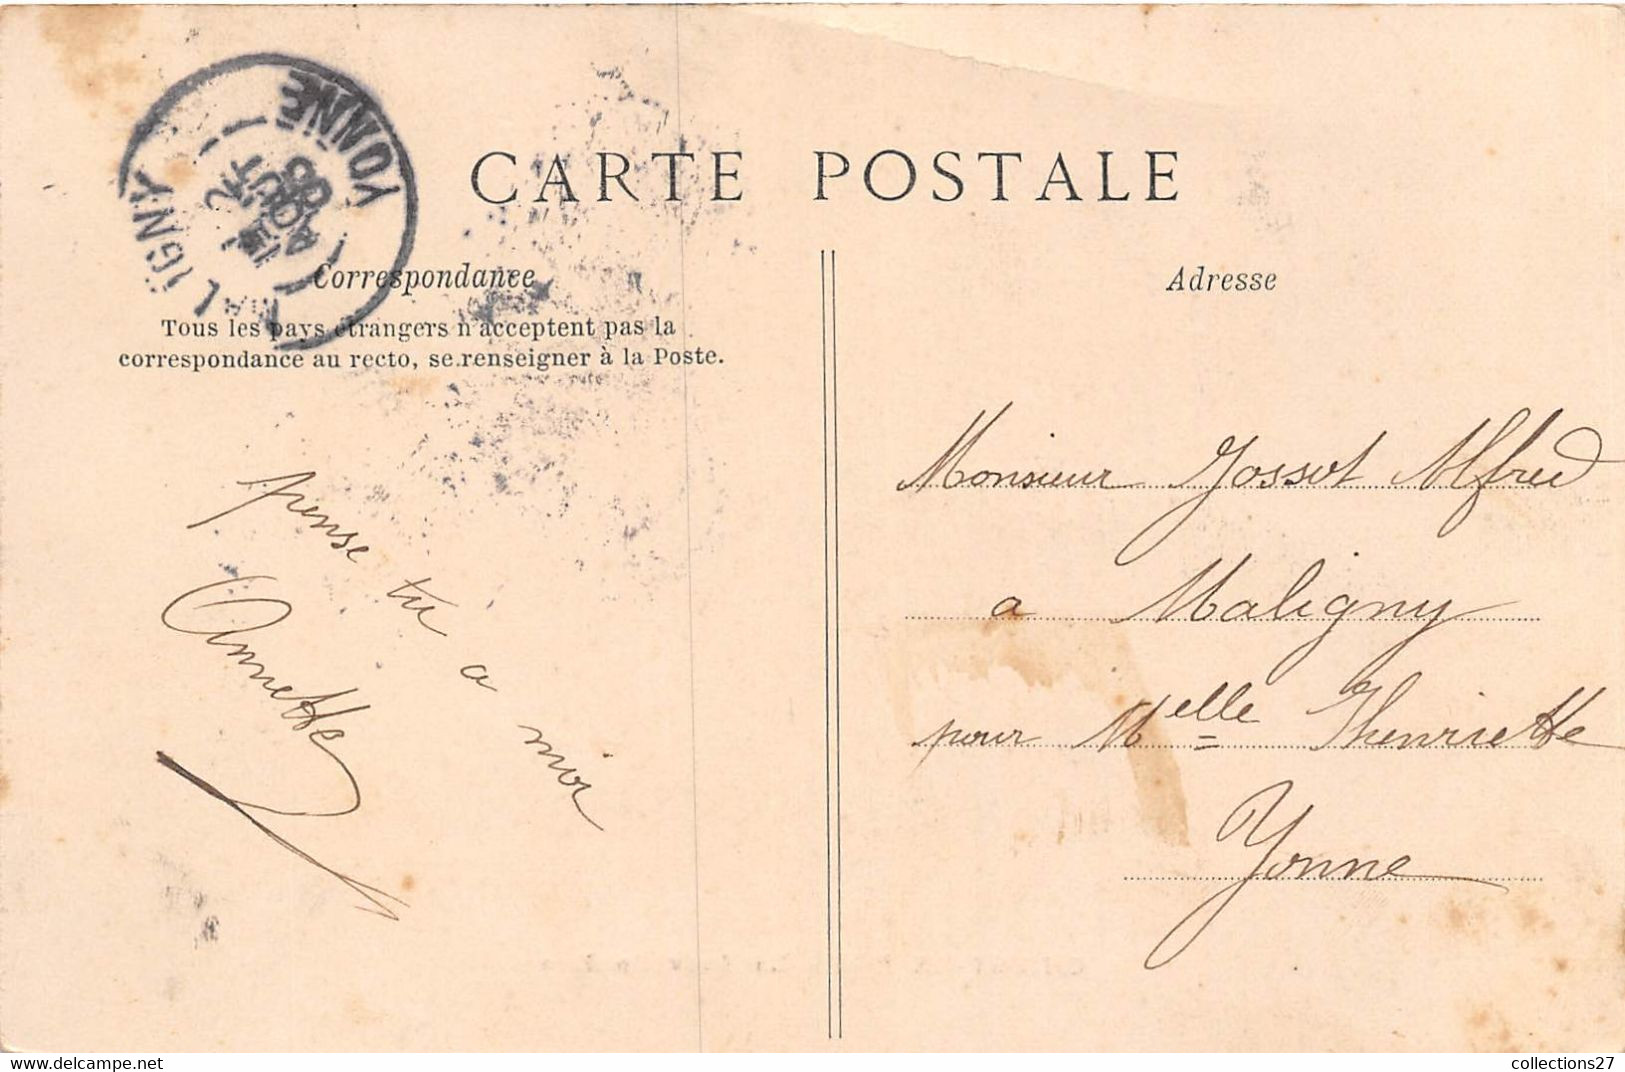 CARTE POSTALE
MALIGNY
YONNE
AOUT
Correspondance
Tous les pays étrangers n'acceptent pas la
correspondance au recto, se renseigner à la Poste.
pense tu a moi
Annette
Adresse
Monsieur Jossot Alfred
a Maligny
pour Melle Henriette
Yonne
delcampe.net
collections27